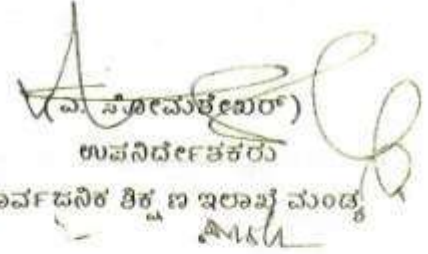 (ಎ. ಸೋಮಶೇಖರ್)
ಉಪನಿರ್ದೇಶಕರು
ಶಿಕ್ಷಣ ಇಲಾಖೆ ಮಂಡ್ಯ